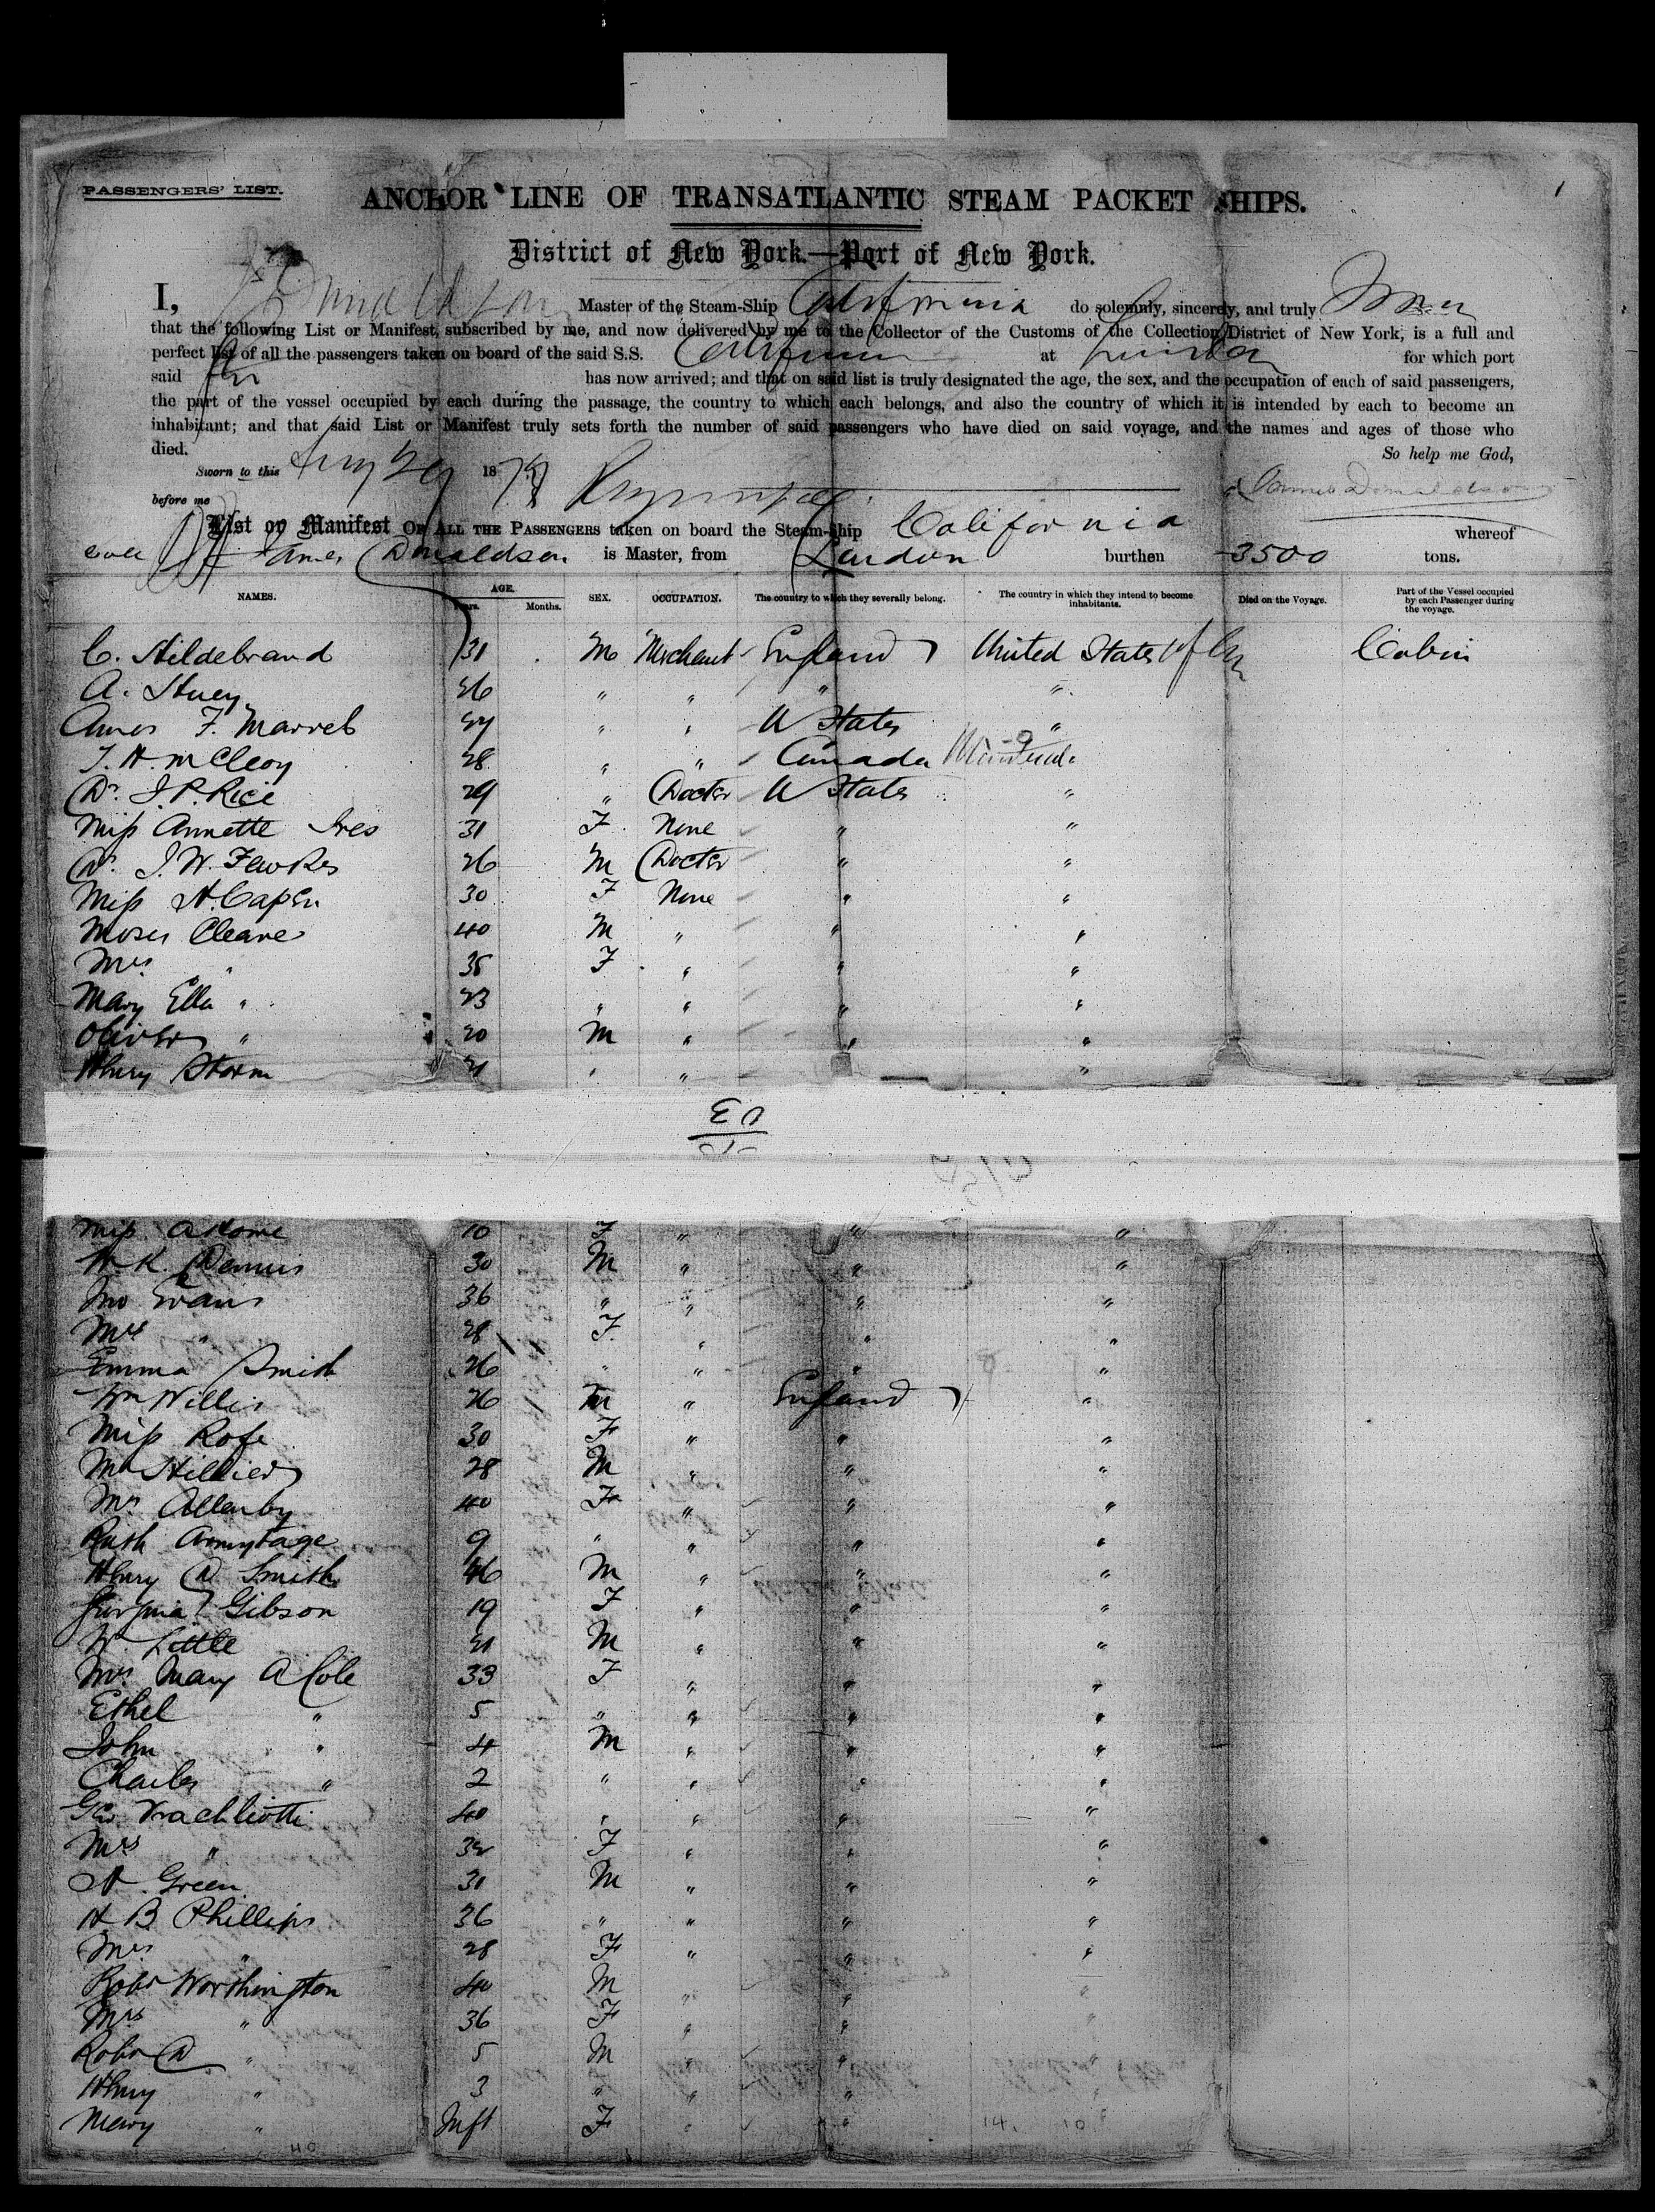 PASSENGERS' LIST.
1
ANCHOR LINE OF TRANSATLANTIC STEAM PACKET SHIPS.
District of New York.—Port of New York.
I, Donaldson Master of the Steam-Ship California do solemnly, sincerely, and truly
that the following List or Manifest, subscribed by me, and now delivered by me to the Collector of the Customs of the Collection District of New York, is a full and
perfect list of all the passengers taken on board of the said S.S. California at London for which port
said has now arrived; and that on said list is truly designated the age, the sex, and the occupation of each of said passengers,
the part of the vessel occupied by each during the passage, the country to which each belongs, and also the country of which it is intended by each to become an
inhabitant; and that said List or Manifest truly sets forth the number of said passengers who have died on said voyage, and the names and ages of those who
died. So help me God,
Sworn to this 18
before me James Donaldson
List or Manifest OF ALL THE PASSENGERS taken on board the Steam-Ship California whereof
James Donaldson is Master, from London burthen 3500 tons.
NAMES. AGE. Years. Months. SEX. OCCUPATION. The country to which they severally belong. The country in which they intend to become inhabitants. Died on the Voyage. Part of the Vessel occupied by each Passenger during the voyage.
C. Hildebrand 31 M Merchant England United States of Cabin
A. Huey 26 " " " "
F. Marvel 27 " " U States "
T. H. McCleoy 28 " " Canada
Dr. J. P. Rice 29 " Doctor U States "
Miss Annette Ives 31 F. None " "
Dr. J. W. Fewkes 26 M Doctor " "
Miss H. Capen 30 F None " "
Moses Cleave 40 M " " "
Mrs " 35 F " " "
Mary Ella " 23 " " " "
Oliver " 20 M " " "
Henry Storm 21 " " "
Miss A Home 10 F " " "
H. K. Dennis 30 M " " "
Jno Evans 36 " " " "
Mrs " 28 F. " " "
Emma Smith 26 " " " "
Wm Willis 26 M " England "
Miss Rose 30 F " " "
Mr Hillier 28 M " " "
Mrs Allenby 40 F " " "
Ruth Armytage 9 " " " "
Henry D Smith 46 M " " "
Gibson 19 F " " "
W. Little 21 M " " "
Mrs Mary A Cole 33 F " " "
Ethel " 5 " " " "
John " 4 M " " "
Charles " 2 " " " "
Geo Vrachliotti 40 " " " "
Mrs " 32 F " " "
H Green 31 M " " "
H B Phillips 36 " " " "
Mrs " 28 F " " "
Robt Worthington 40 M " " "
Mrs " 36 F " " "
Robt D " 5 M " " "
Henry " 3 " " " "
Mary " Inft F " "
40 14. 10